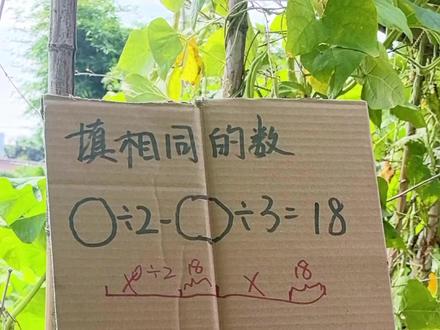 填相同的数
○÷2-○÷3=18
÷2 18 x 18